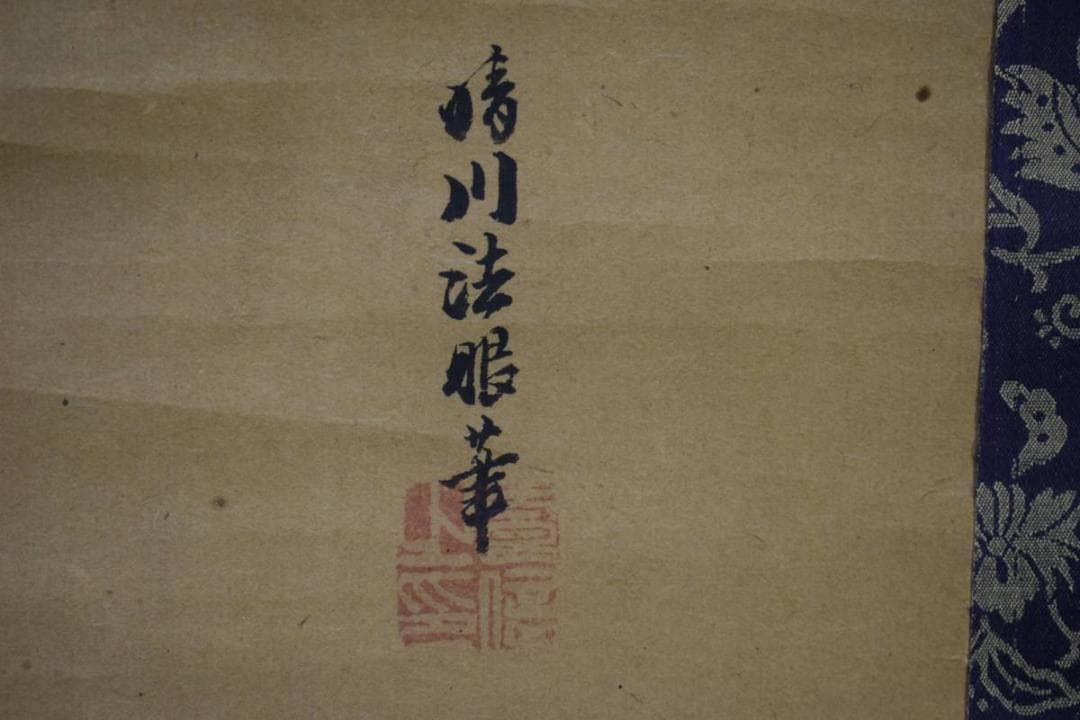 晴川法眼筆